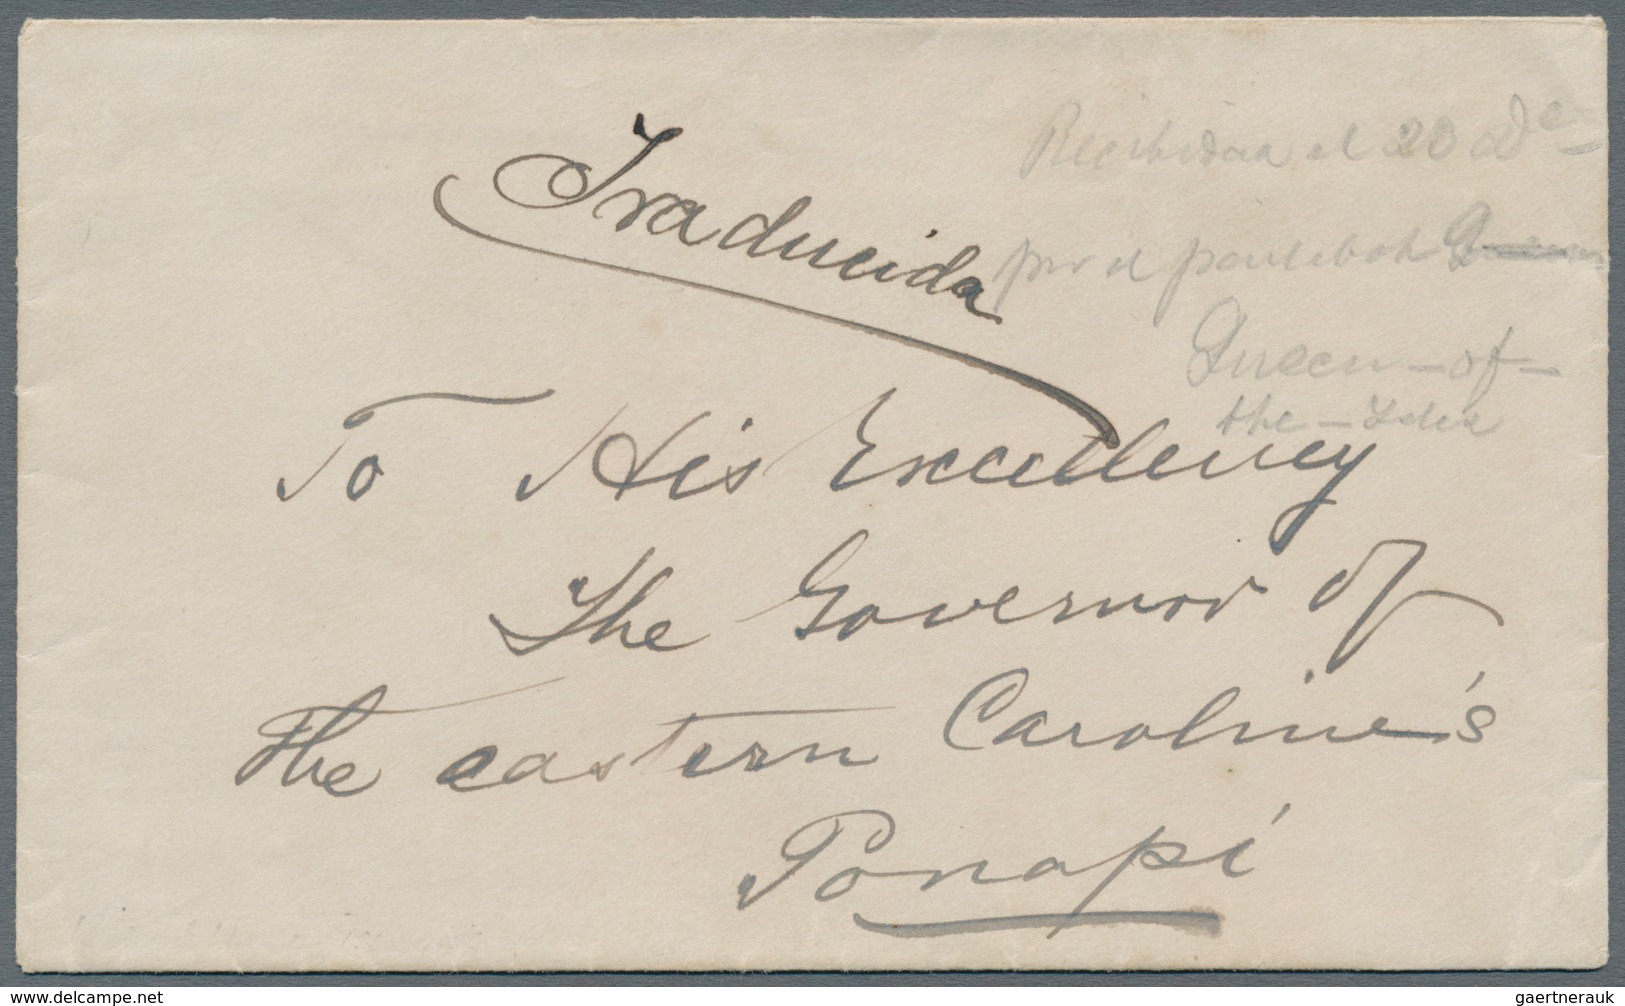 Traducida
Recibida el 20 De
por el pailebot
Queen-of-
the-Isles
To His Excellency
The Governor of
the eastern Caroline's
Ponapi
www.delcampe.net
gaertnerauk